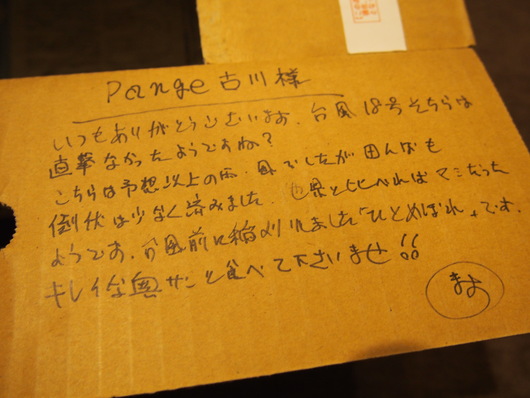 Pange 古川様
いつもありがとうございます。台風18号そちらは
直撃なかったようですね?
こちらは予想以上の雨、風でしたが田んぼも
倒伏は少なく済みました。他県と比べればマシだった
ようです。台風前に稲刈りしました「ひとめぼれ」です。
キレイな奥サンと食べて下さいませ!!